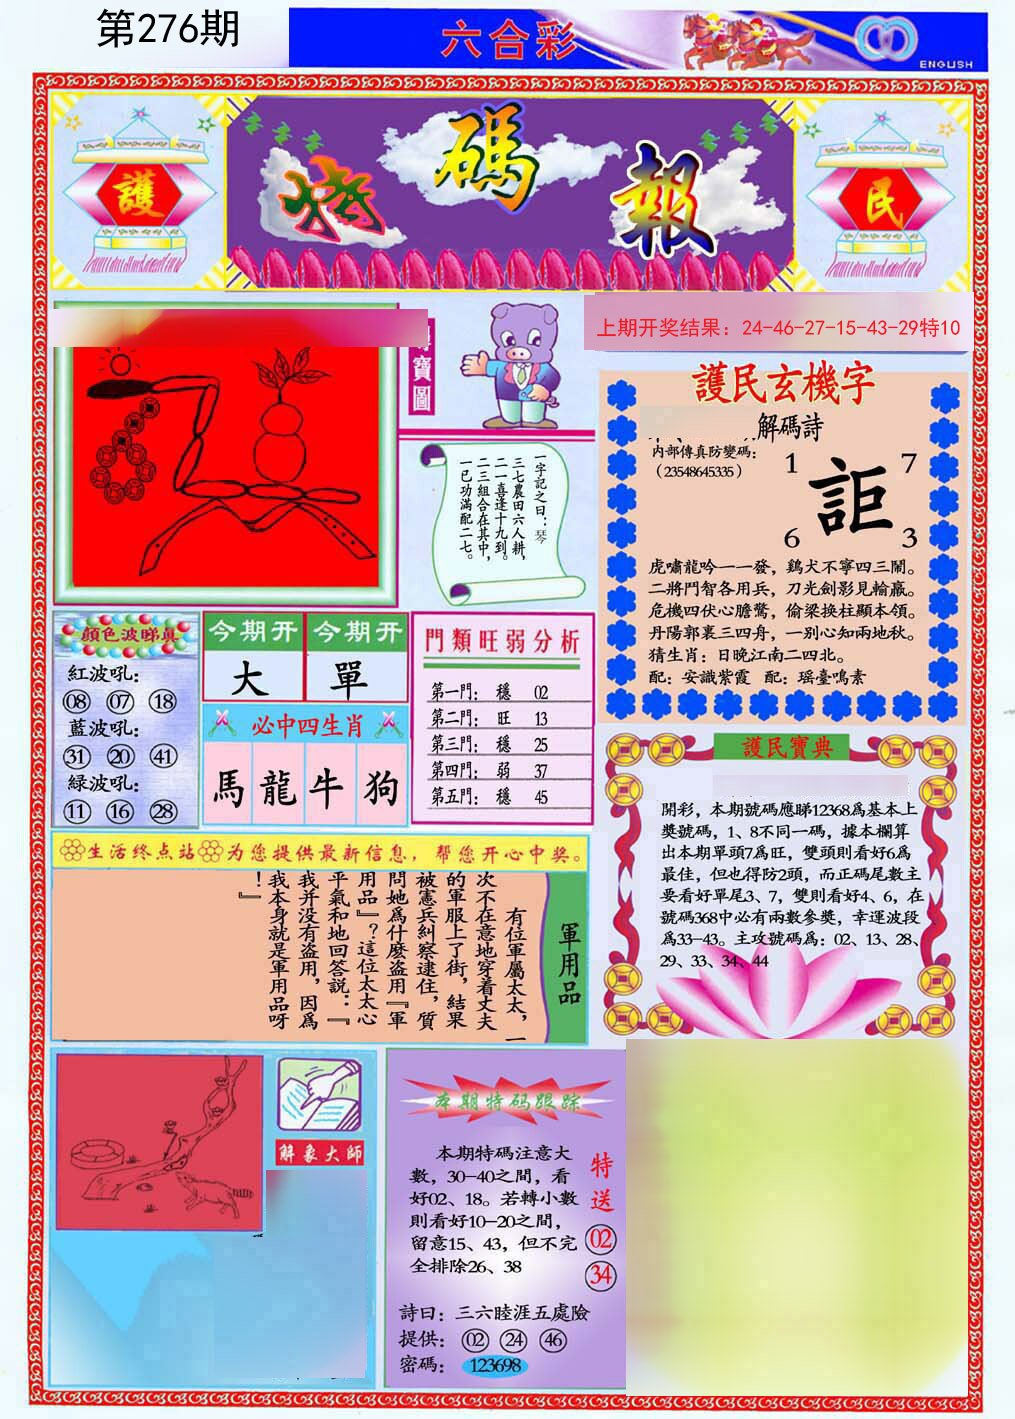 第276期
六合彩
ENGLISH
護
特碼報
民
寶圖
上期开奖结果：24-46-27-15-43-29特10
一字記之曰：琴
三七農田六人耕，
二一喜逢十九到。
二三組合在其中，
一已功滿配二七。
護民玄機字
解碼詩
内部傳真防變碼：
（23548645335）
1 7
詎
6 3
虎嘯龍吟一一發，鷄犬不寧四三鬧。
二將鬥智各用兵，刀光劍影見輸贏。
危機四伏心膽驚，偷梁换柱顯本領。
丹陽郭裏三四舟，一别心知兩地秋。
猜生肖：日晚江南二四北。
配：安識紫霞 配：瑶臺鳴素
顔色波睇真
紅波吼：
08 07 18
藍波吼：
31 20 41
緑波吼：
11 16 28
今期开 今期开
大 單
必中四生肖
馬 龍 牛 狗
門類旺弱分析
第一門： 穩 02
第二門： 旺 13
第三門： 穩 25
第四門： 弱 37
第五門： 穩 45
護民寶典
開彩，本期號碼應睇12368爲基本上
獎號碼，1、8不同一碼，據本欄算
出本期單頭7爲旺，雙頭則看好6爲
最佳，但也得防2頭，而正碼尾數主
要看好單尾3、7，雙則看好4、6，在
號碼368中必有兩數參獎，幸運波段
爲33-43。主攻號碼爲：02、13、28、
29、33、34、44
生活终点站 为您提供最新信息，帮您开心中奖。
軍用品
有位軍屬太太，一
次不在意地穿着丈夫
的軍服上了街，結果
被憲兵糾察逮住，質
問她爲什麼盗用『軍
用品』？這位太太心
平氣和地回答説：『
我并没有盗用，因爲
我本身就是軍用品呀
！』
解象大師
本期特码跟踪
本期特碼注意大
數，30-40之間，看
好02、18。若轉小數
則看好10-20之間，
留意15、43，但不完
全排除26、38
特送
02
34
詩曰：三六睦涯五處險
提供： 02 24 46
密碼： 123698